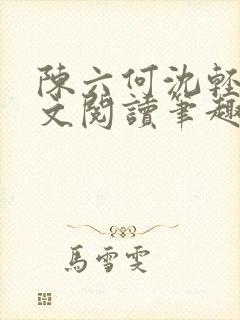 陳六何沈輕
文閱讀筆趣
馬雪雯